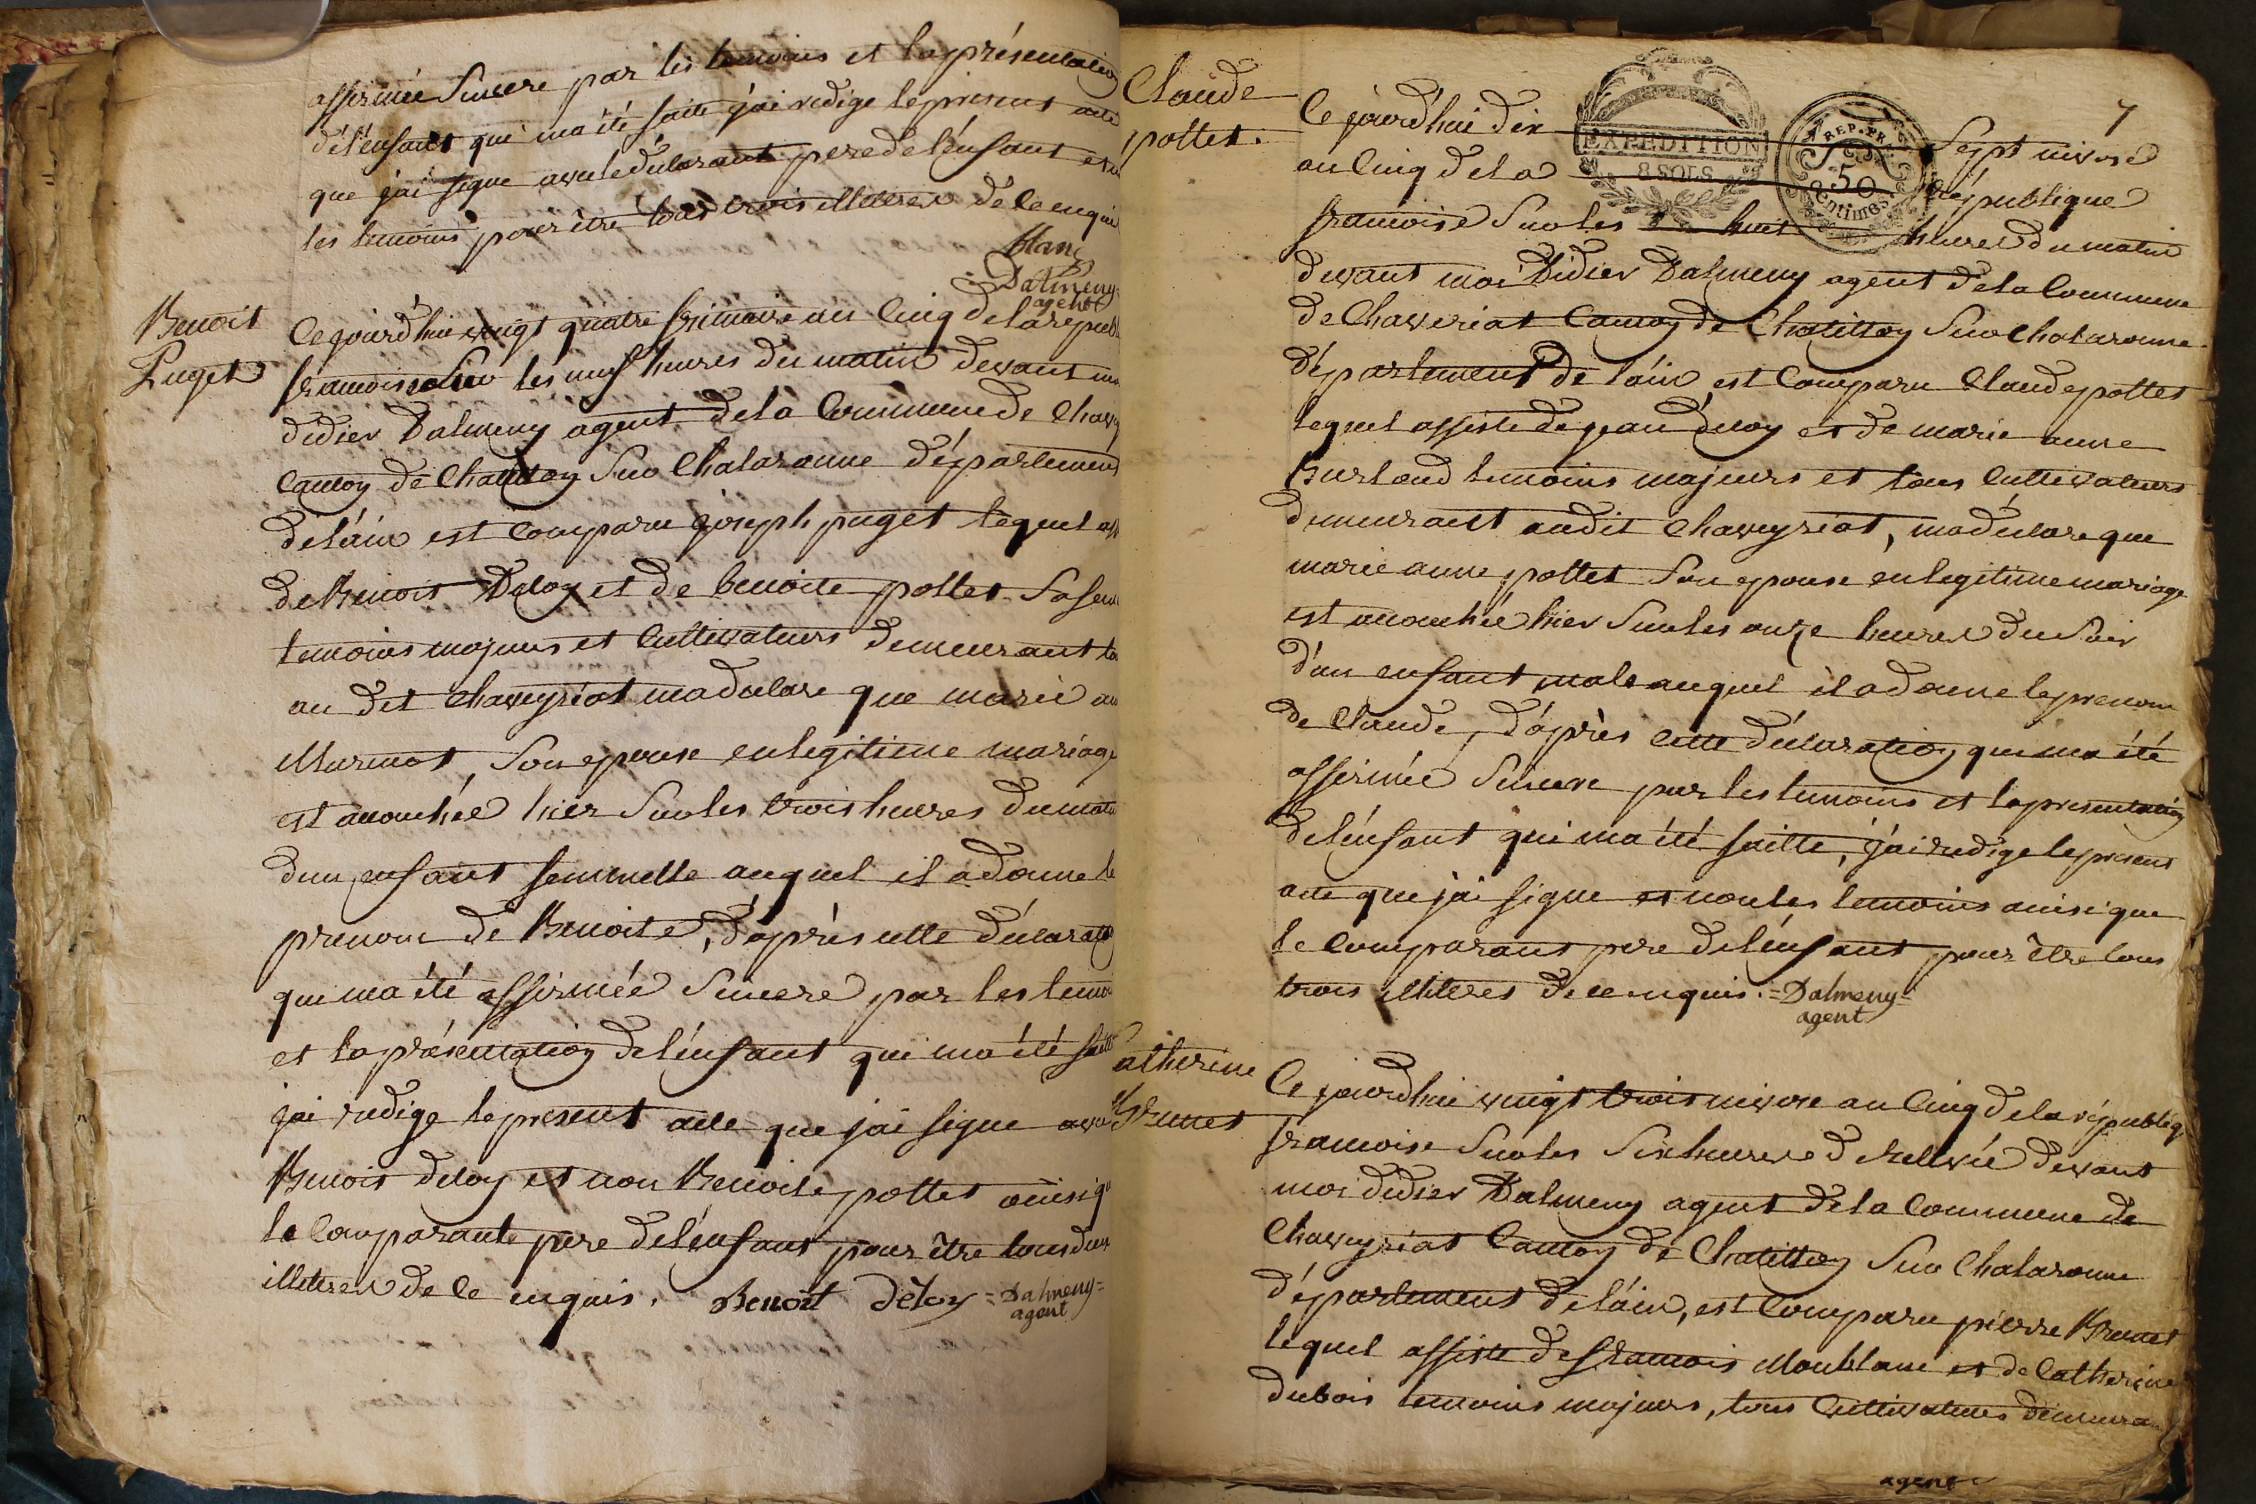 affirmée Sincere par les temoins et la présentation
dé lénfant qui ma été faite j'ai redige le present acte
que jái signe avec le déclarant pere de lénfant et
les temoins pour être tous trois illitéres de ce enquis
Blanc
Dalmeny
agent
Benoit
Puget
Ce jourd'hui vingt quatre frimaire an Cinq de la republ
francoise Sur les neuf heures du matin devant m
didier Dalmeny agent de la Commune de Chavey
Canton de Chatillon Sur Chalaronne département
de láin est Comparu joseph puget lequel ass
de Benoit Deloy et de benoite pottet Sa fem
temoins majeurs et Cultivateurs demeurant to
au dit Chaveyriat ma declare que marie an
Murmot, Son epouse en legitime mariage
est accouchée hier Sur les trois heures du matin
dun enfant femmelle auquel il a donne le
prenom de Benoite, dáprès cette déclaratio
qui ma été affirmée Sincere par les temoi
et la présentation de lénfant qui ma été faitte
j'ai redige le present acte que jai signe avec
Benoit deloy et non Benoite pottet ainsi q
le Comparante pere de lénfant pour être tous deux
illitéres de ce enquis. Benoit Déloy =Dalmeny=
agent
Claude
pottet.
7
Ce jourd'hui dix Sept nivose
EXPEDITION
8 SOLS
REP. FR.
50
Centimes
an Cinq de la République
francoise Sur les huit heures du matin
devant moi Didier Dalmeny agent de la Commune
de Chaveriat Canton de Chatillon Sur Chalaronne
département de láin, est Comparu Claude pottet
lequel assisté de jean Deloy et de marie anne
Burtoud temoins majeurs et tous Cultivateurs
demeurant audit Chaveyriat, ma déclare que
marie anne pottet Son epouse en legitime mariage
est accouchée hier Sur les onze heures du Soir
d'un enfant male auquel il a donne le prenom
de Claude, dáprès cette déclaration qui ma été
affirmée Sincere par les temoins et la presentation
de lénfant qui ma été faitte, j'ai redige le present
acte que j'ai signe et non les temoins ainsi que
le Comparant pere de lénfant, pour être tous
trois illitéres de ce enquis. =Dalmeny=
agent
atherine
Brunet
Ce jourd'hui vingt trois nivose an Cinq de la républiq
francoise Sur les Six heures de Relevée devant
moi didier Dalmeny agent de la Commune de
Chaveyriat Canton de Chatillon Sur Chalaronne
département de láin, est Comparu pierre Brunet
lequel assiste de francois Monblanc et de Catherine
dubois temoins majeurs, tous Cultivateurs demeuran
agent